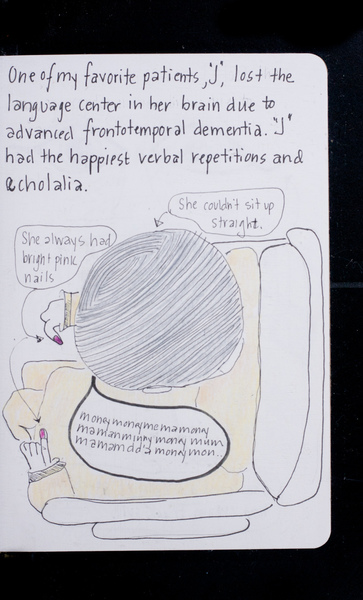 One of my favorite patients, "J", lost the
language center in her brain due to
advanced frontotemporal dementia. "J"
had the happiest verbal repetitions and
echolalia.
She couldn't sit up
straight.
She always had
bright pink
nails
money money
money mum
mon..